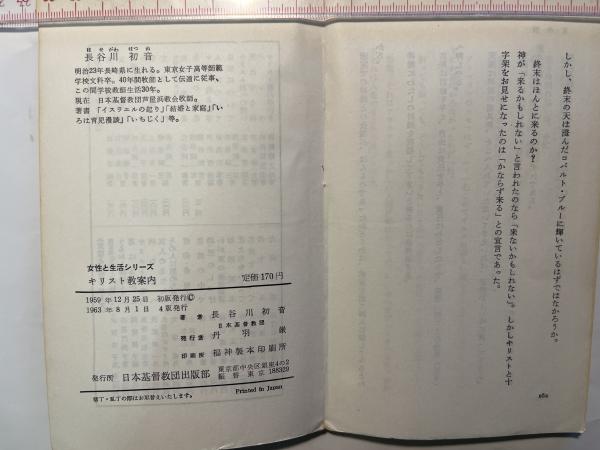 しかし、終末の天は澄んだコバルト・ブルーに輝いているはずではなかろうか。
終末はほんとに来るのか?
神が「来るかもしれない」と言われたのなら「来ないかもしれない」。しかしキリストと十
字架をお見せになったのは「かならず来る」との宣言であった。
はせがわ はつね
長谷川 初音
明治23年長崎県に生れる。東京女子高等師範
学校文科卒。40年間牧師として伝道に従事、
この間学校教師生活30年。
現在 日本基督教団芦屋浜教会牧師。
著書 「イスラエルの起り」「結婚と家庭」「い
ろは育児漫談」「いちじく」等。
女性と生活シリーズ
キリスト教案内
定価170円
1959年12月25日 初版発行©
1963年8月1日 4版発行
著者 長谷川初音
日本基督教団
発行者 丹羽
印刷所 福神製本印刷所
発行所 日本基督教団出版部
東京都中央区銀座4の2
振替東京188329
Printed in Japan
落丁・乱丁の際はお取替えいたします。